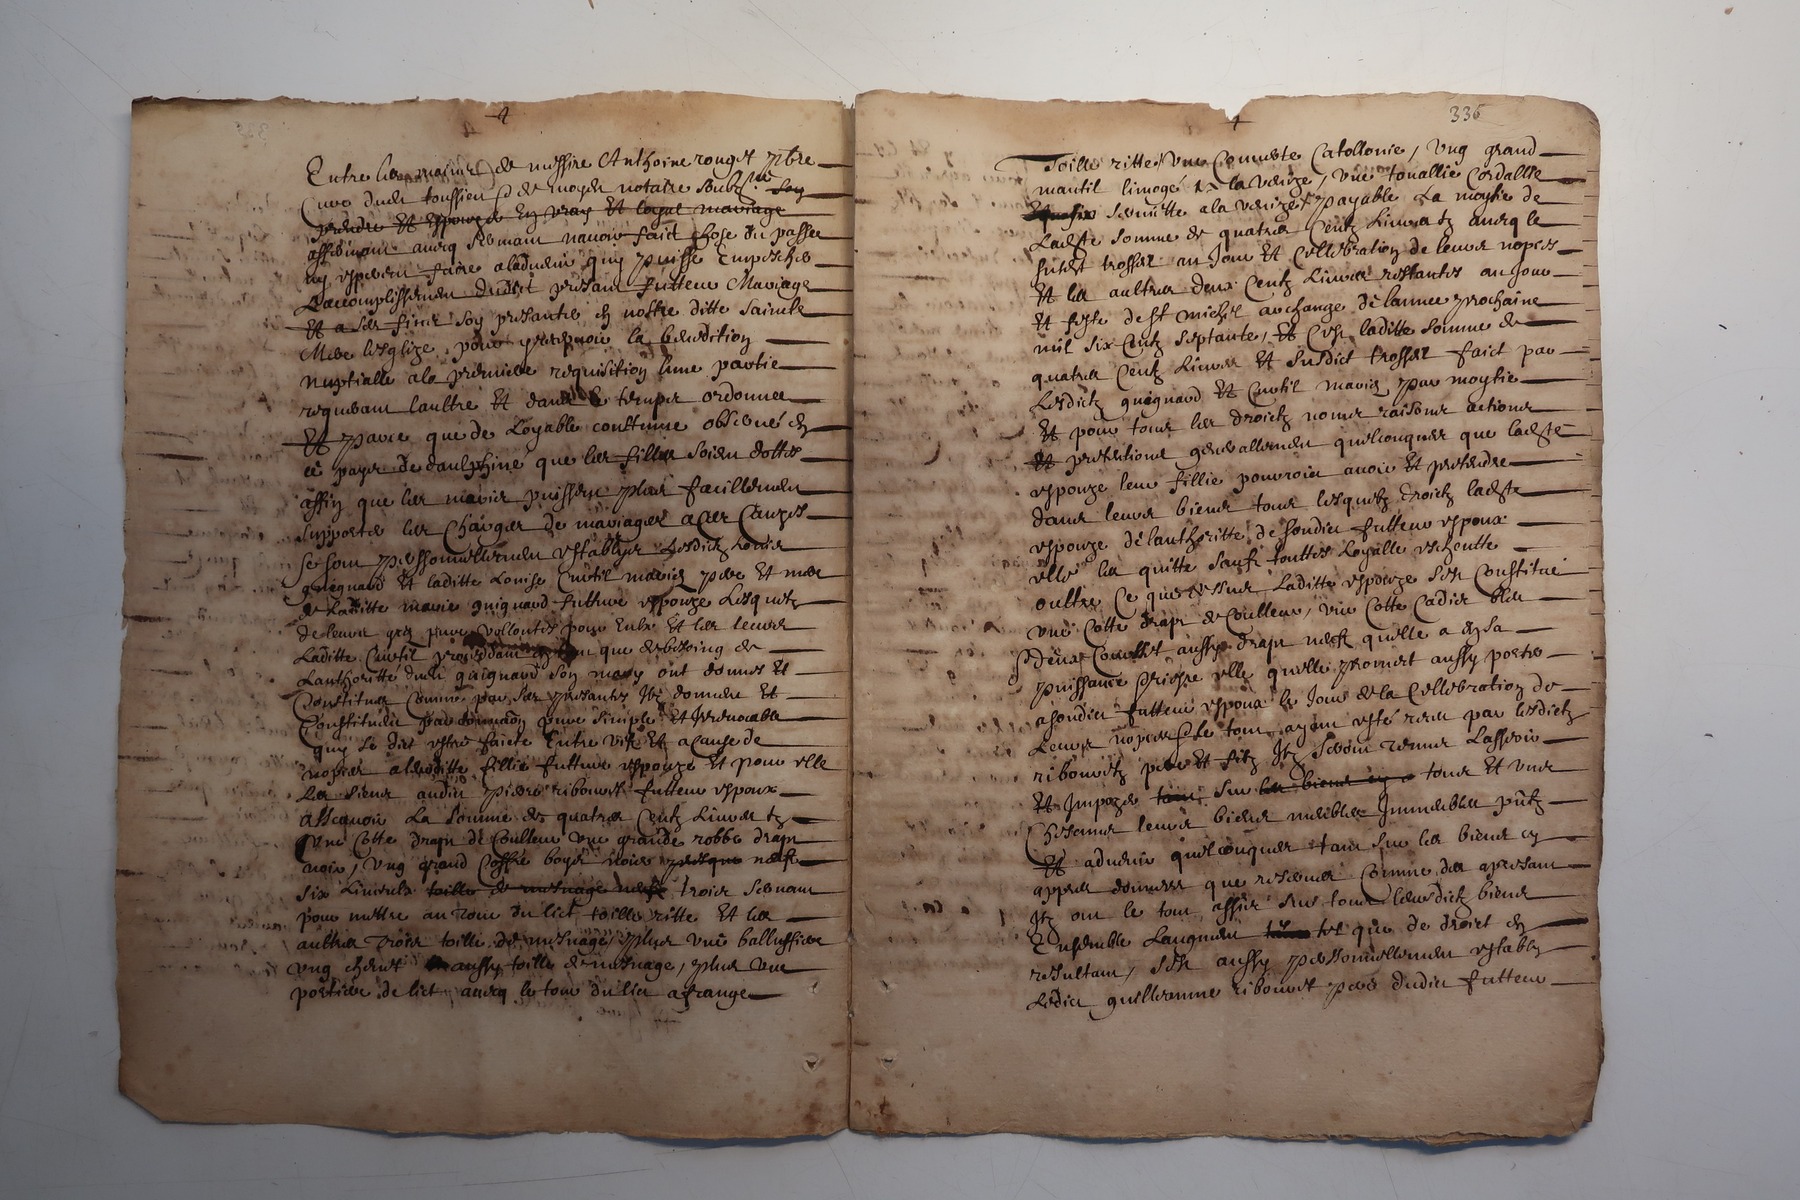 Entre les mains de messire Anthoine rouget pbre
Curé dudit toussieu de moyen notaire soubz.ne soy
prendre Et Espouzer En vray Et loyal mariage
affirmant aueq serment nauoir faict chose du passee
ny esperer faire aladuenir quy puisse Empescher
Lacomplissement dudit presant futteur Mariage
Et a ses fins soy presanter en nostre ditte saincte
Mere lesglize pour persepuoir la benedition
nuptialle ala premiere requisition lune partie
requerant laultre Et dans le temps ordonnee
Et parce que de Loyable coustume obserué en
ce pays de dauphiné que les filles soient dottes
affin que les maris puissent plus facillement
supporter les Charges de mariages a Ces Cauzes
se sont personnellement establys Lesdictz Louis
guignard Et laditte Louise Curtil maries pere Et mere
de Laditte marie guignard futture espouze Lesquelz
de leurs gres pures vollontes pour Eulx Et les leurs
Laditte Curtil proceddant en tant que de besoing de
Lanthoritte dudit guignard son mary ont donnes Et
Constitues Comme par ses presantes Ilz donnent Et
Constituent par donnaon pure simple Et Irreuocable
quy se dict estre faicte Entre vifz Et a cause de
nopces aleurditte fillie futture espouze Et pour elle
Les siens audit pierre ribouret futteur espoux
assauoir La somme de quatres Centz Liures tz
Vne Cotte drap de Coulleur vne grande robbe drap
noir, Vng grand Coffre boys noier presque neufz
six Linceulx toille de mesnage neufz trois seruant
pour mettre au tour du lict toille ritte Et les
aultres trois toille de mesnage, plus vne
vng cheuet aussy toille de mesnage, plus vne
portiere de lict aueq le tour du lict a frange
336
Toille ritte, vne Couuerte Catollonie, Vng grand
mantil limogé a la Venize, vne touallie Cordalle
seruiette ala venize, payable La moytie de
Ladite somme de quatres Centz Liures tz aueq le
susdit trossel au Jour Et Cellebration de leurs nopces
Et les aultres deux Centz Liures restantes au Jour
Et feste de st michel archange de lannee prochaine
mil six Centz septante, Et Cest laditte somme de
quatres Centz Liures Et susdict trossel faict par
Lesdictz guignard Et Curtil maries par moytie
Et pour tous les droictz noms raisons actions
Et pretentions generallement quelconques que ladite
espouze leur fillie pourroit auoir Et pretendre
dans leurs biens tous lesquelz droictz ladite
espouze de lanthoritte de sondit futteur espoux
elle les quitte saufz touttes Loyalle escheutte
oultre Ce que dessus Laditte espouze sest Constitué
vne Cotte drap de Coulleur, vne Cotte Cadis bleu
deux aussy drap neufz quelle a en sa
puissance priopre elle quelle promet aussy porter
asondit futteur espoux le Jour de la Cellebration de
Leurs nopces, le tout ayant esté receu par lesdictz
ribouretz pere Et filz Ilz seront tenus Lasseoir
Et Impozer sur les biens en tous Et vns
Chescuns leurs biens meubles Immeubles pntz
Et aduenir quelconques tant sur les biens cy
appres donnes que reserues Comme des apresant
Ilz ont le tout assis sur tous leursdictz biens
Ensemble Laugment tel que de droict en
resultant, sest aussy personnellement estably
Ledict guilliaume ribouret pere dudit futteur